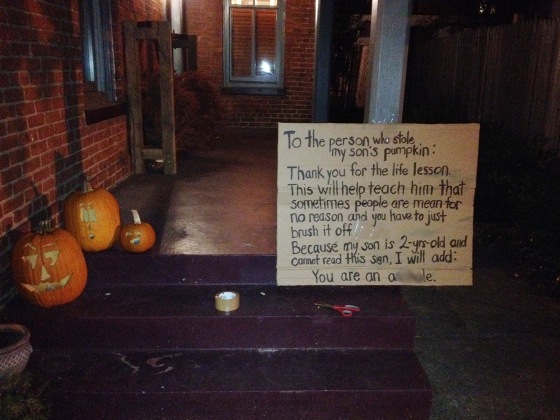 To the person who stole
my son's pumpkin:
Thank you for the life lesson.
This will help teach him that
sometimes people are mean for
no reason and you have to just
brush it off.
Because my son is 2-yrs-old and
cannot read this sign, I will add:
You are an a le.